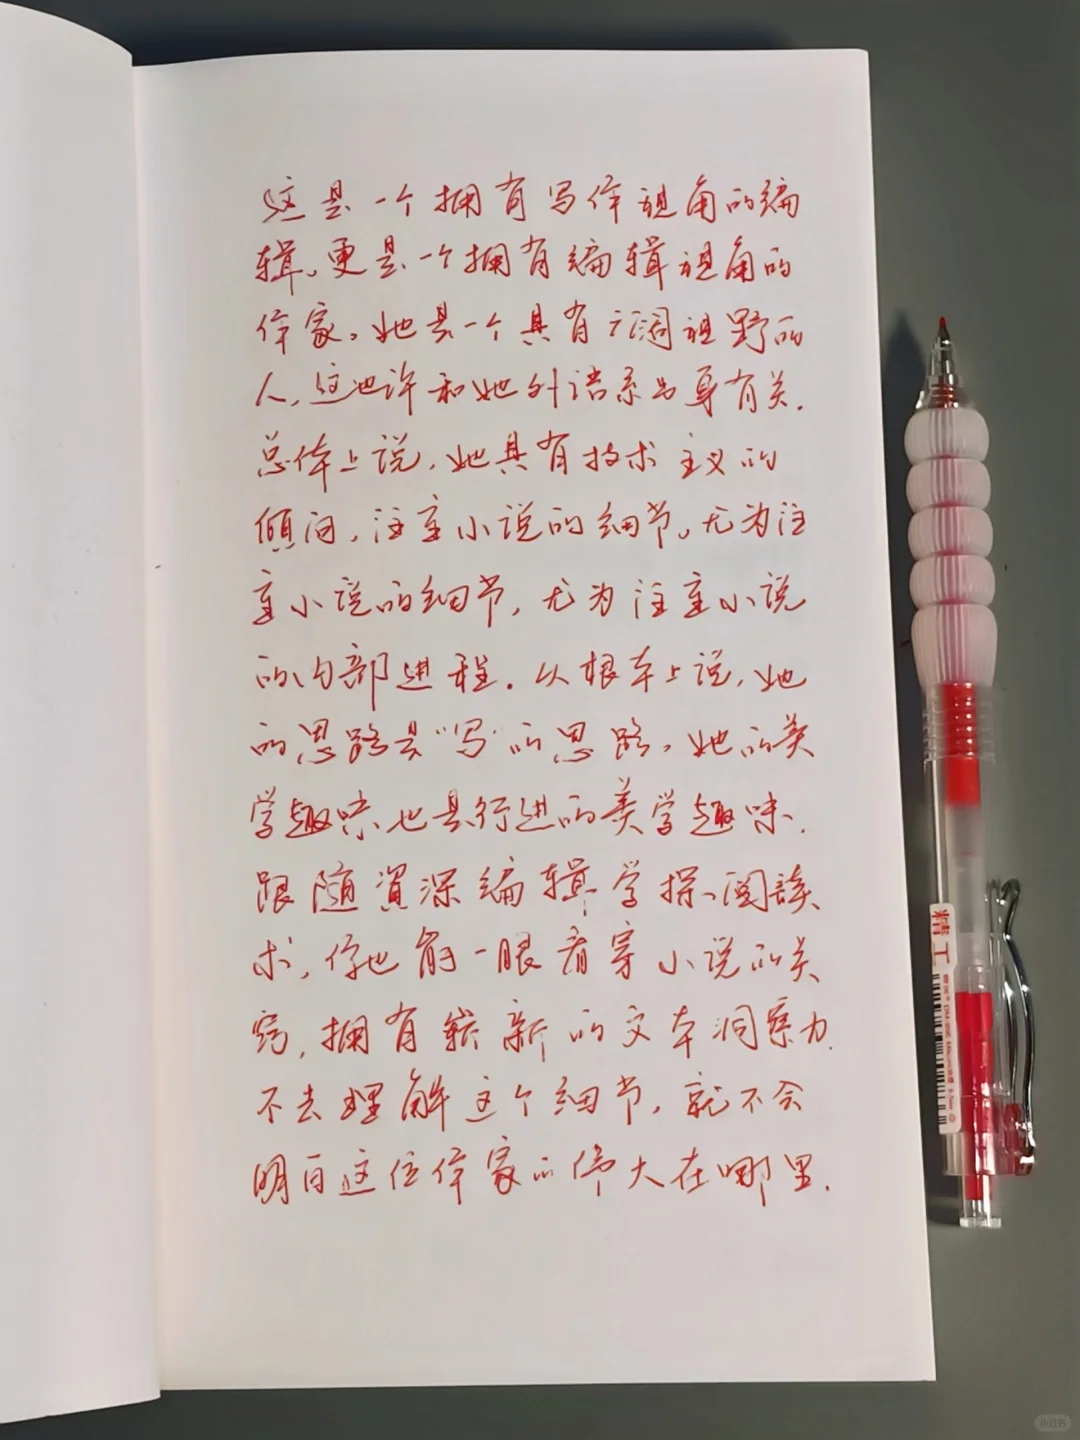 这是一个拥有写作视角的编
辑。更是一个拥有编辑视角的
作家。她是一个具有广阔视野的
人，这也许和她外语系出身有关.
总体上说，她具有技术主义的
倾向，注重小说的细节，尤为注
重小说的细节，尤为注重小说
的内部进程.从根本上说，她
的思路是“写”的思路，她的美
学趣味也是行进的美学趣味.
跟随資深编辑学探阅读
术，你也能一眼看穿小说的关
窍，拥有崭新的文本洞察力.
不去理解这个细节，就不会
明白这位作家的伟大在哪里.
精工
小红书